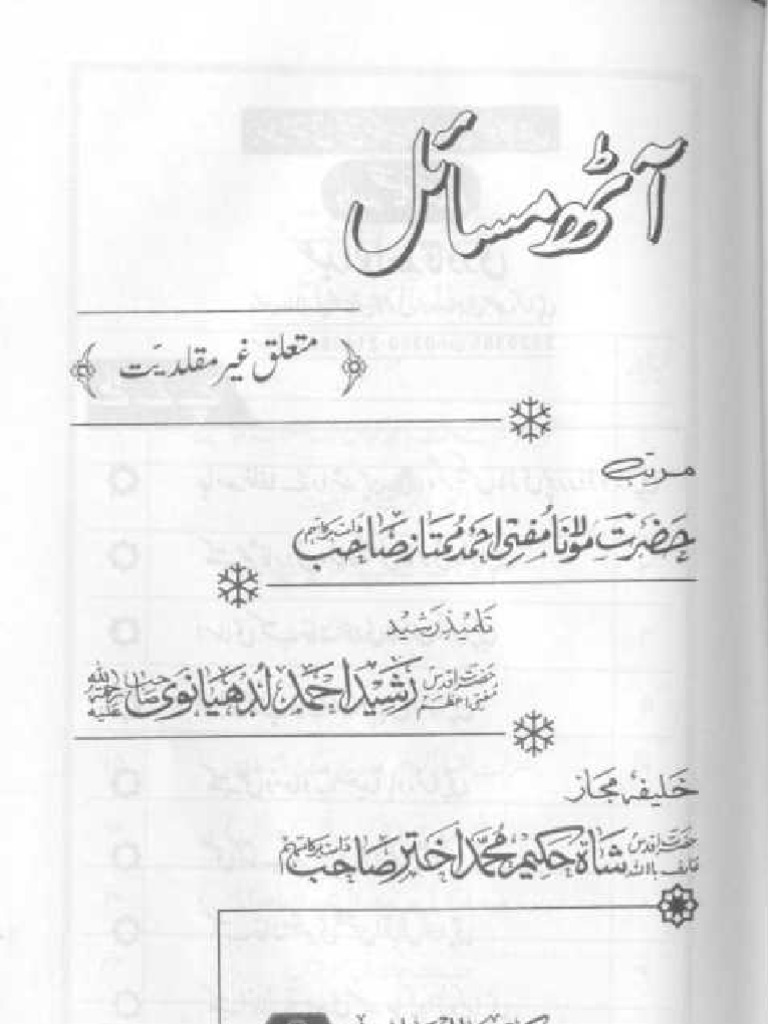 آٹھ مسائل
متعلق غیر مقلدیت
مرتب
حضرت مولانا مفتی احمد ممتاز صاحب دامت برکاتہم
تلمیذ رشید
حضرت اقدس مفتی اعظم رشید احمد لدھیانوی صاحب رحمۃ اللہ علیہ
خلیفہ مجاز
حضرت اقدس عارف باللہ شاہ حکیم محمد اختر صاحب دامت برکاتہم